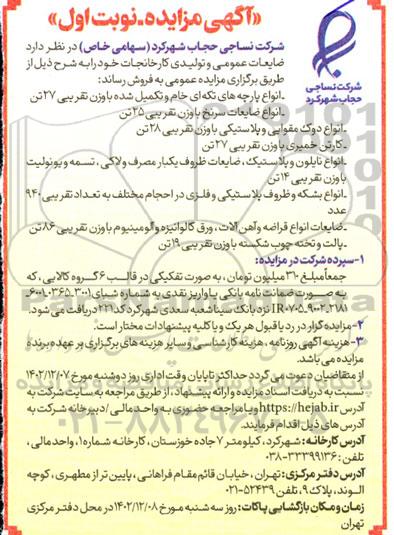 «آگهی مزایده_نوبت اول»
شرکت نساجی
حجاب شهرکرد
شرکت نساجی حجاب شهرکرد (سهامی خاص) در نظر دارد
ضایعات عمومی و تولیدی کارخانجات خود را به شرح ذیل از
طریق برگزاری مزایده عمومی به فروش رساند:
_انواع پارچه های تکه ای خام و تکمیل شده با وزن تقریبی ۲۷ تن
_انواع ضایعات سرنخ با وزن تقریبی ۲۵ تن
_انواع دوک مقوایی و پلاستیکی با وزن تقریبی ۲۸ تن
_کارتن خمیری با وزن تقریبی ۲۷ تن
_انواع نایلون و پلاستیک، ضایعات ظروف یکبار مصرف ولاکی، تسمه و یونولیت
با وزن تقریبی ۱۴ تن
_انواع بشکه و ظروف پلاستیکی و فلزی در احجام مختلف به تعداد تقریبی ۹۴۰
عدد
_ضایعات انواع قراضه و آهن آلات، ورق گالوانیزه و آلومینیوم با وزن تقریبی ۸۶ تن
_پالت و تخته چوب شکسته با وزن تقریبی ۱۹ تن
۱-سپرده شرکت در مزایده:
جمعاً مبلغ ۳۱۰ میلیون تومان، به صورت تفکیکی در قالب ۶ گروه کالایی، که
به صورت ضمانت نامه بانکی یا واریز نقدی به شماره شبای
نزد بانک سینا شعبه سعدی شهرکرد کد ۲۲۱ دریافت می شود.
۲-مزایده گزار در رد یا قبول هر یک و یا کلیه پیشنهادات مختار است.
۳-هزینه آگهی روزنامه، هزینه کارشناسی و سایر هزینه های برگزاری بر عهده برنده
مزایده می باشد.
از متقاضیان دعوت می گردد حداکثر تا پایان وقت اداری روز دوشنبه مورخ ۱۴۰۲/۱۲/۰۷
نسبت به دریافت اسناد مزایده و ارائه پیشنهاد، از طریق مراجعه به سایت شرکت به
آدرس https://hejab.ir و یا مراجعه حضوری به واحد مالی / دبیرخانه شرکت به
آدرس های ذیل اقدام فرمایند.
آدرس کارخانه: شهرکرد، کیلومتر ۷ جاده خوزستان، کارخانه شماره۱، واحد مالی،
تلفن: ۳۳۳۹۹۱۳۶-۰۳۸
آدرس دفتر مرکزی: تهران، خیابان قائم مقام فراهانی، پایین تر از مطهری، کوچه
الوند، پلاک ۹، تلفن ۵۲۴۳۹-۰۲۱
زمان و مکان بازگشایی پاکات: روز سه شنبه مورخ ۱۴۰۲/۱۲/۰۸ در محل دفتر مرکزی
تهران